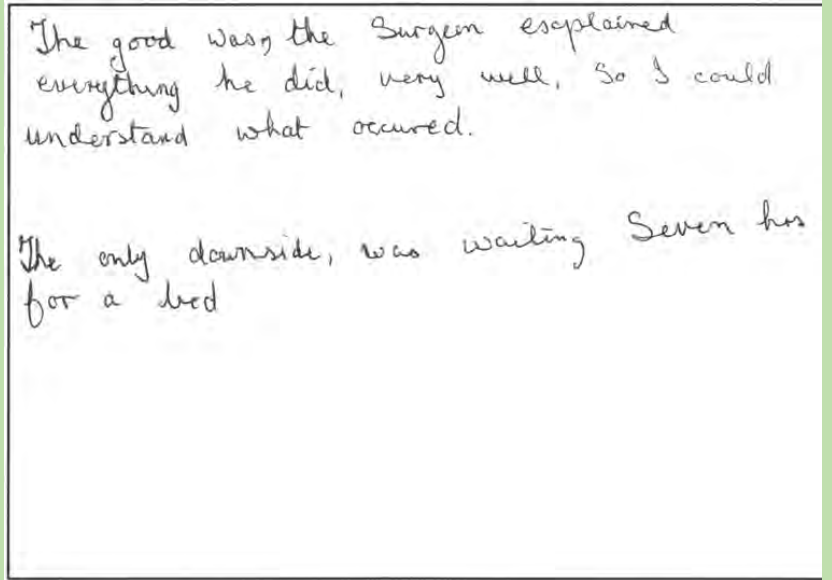 The good was, the Surgeon explained
everything he did, very well, So I could
understand what occured.
The only downside, was waiting Seven hrs
for a bed